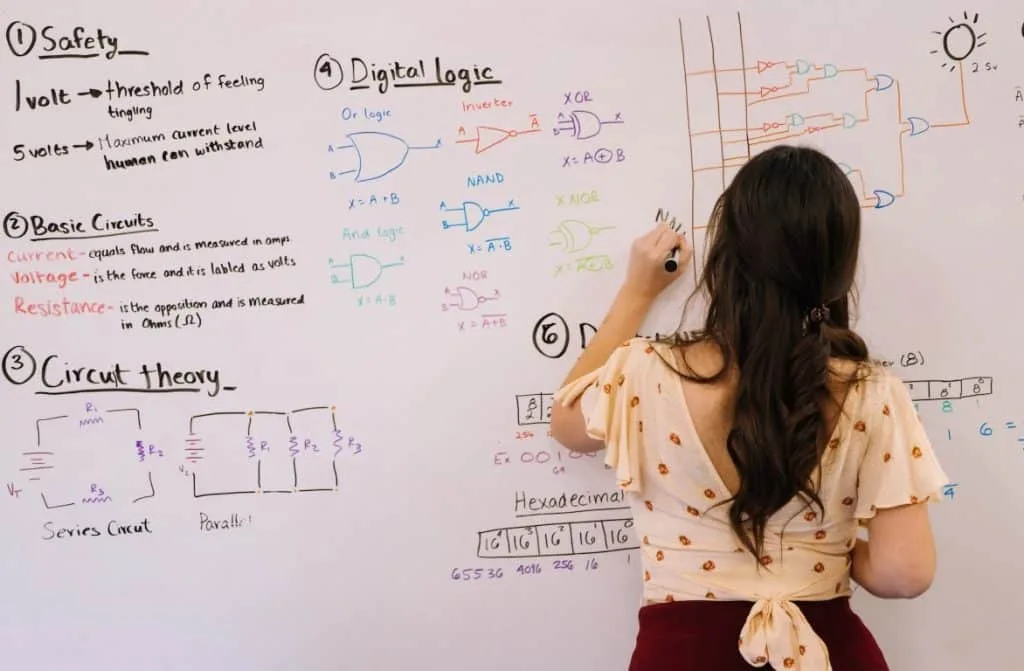 ① Safety
1 volt → threshold of feeling
tingling
5 volts → Maximum current level
human can withstand
② Basic Circuits
Current - equals flow and is measured in amps
Voltage - is the force and it is labled as volts
Resistance - is the opposition and is measured
in Ohms (Ω)
③ Circut theory
R₁
R₂
R₃
V_T
Series Circut
R₁ R₂ R₃
Parallel
④ Digital logic
Or logic
A
B
X
X = A + B
Inverter
A
A̅
XOR
A
B
X
X = A ⊕ B
And logic
X = A·B
NAND
A
B
X
X = \overline{A·B}
NOR
A
B
X
X = \overline{A+B}
X NOR
X = \overline{A⊕B}
2.5v
NAN
⑤ D
(8)
8¹ 8⁰
8 1
1 6 =
4
256
Ex 001
64
Hexadecimal
16⁴ 16³ 16² 16¹ 16⁰
65536 4096 256 16 1